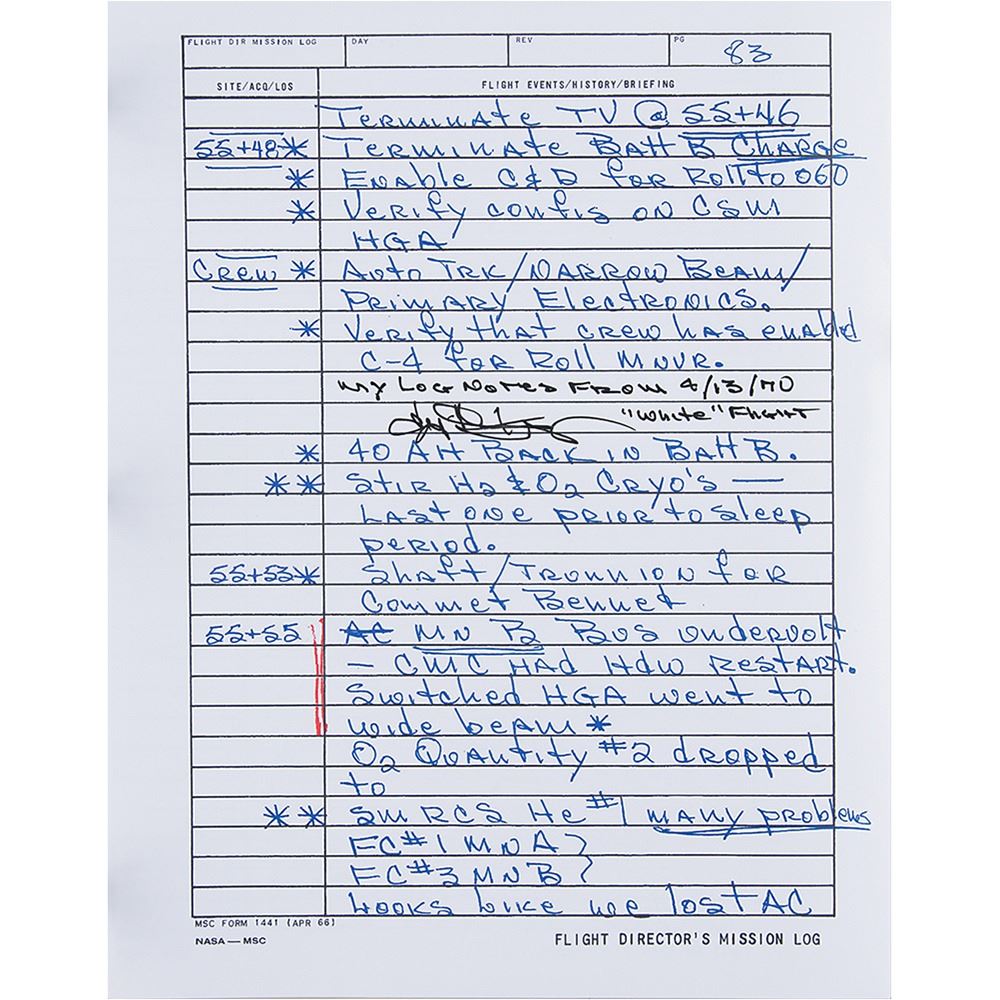 FLIGHT DIR MISSION LOG DAY REV PG 83
SITE/ACQ/LOS FLIGHT EVENTS/HISTORY/BRIEFING
Terminate TV @ 55+46
55+48 * Terminate Batt B Charge
* Enable C&D for Roll to 060
* Verify config on CSM
HGA
Crew * Auto Trk/Narrow Beam/
Primary Electronics.
* Verify that crew has enabled
C-4 for Roll Mnvr.
My Log Notes From 4/13/70
"White" Flight
* 40 AH Back in Batt B.
** Stir H2 & O2 Cryo's —
Last one prior to sleep
period.
55+53 * Shaft/Trunnion for
Commet Bennet
55+55 AC MN B Bus undervolt
— CMC had Hdw Restart.
Switched HGA went to
wide beam *
O2 Quantity #2 dropped
to
** SM RCS He #1 many problems
FC #1 MN A }
FC #3 MN B }
Looks like we lost AC
MSC FORM 1441 (APR 66)
NASA — MSC FLIGHT DIRECTOR'S MISSION LOG